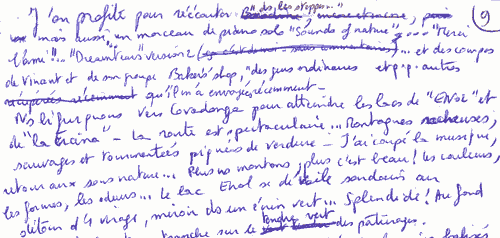 J'en profite pour réécouter "
9
mais aussi, un morceau de piano solo "Sounds of nature"... "Merci
l'âme"!!.. "Dreamtears" version 2 ... et des compos
de Vinant et de son groupe Baker's shop, "des gens ordinaires et p.p. autres
récupérés récemment qu'il m'a envoyés récemment -
Ns bifurquons vers Covadonga pour atteindre les lacs de "ENOL" et
de "la Ercina" - La route est spectaculaire... Montagnes rocheuses,
sauvages et tourmentées piquées de verdure - J'ai coupé la musique,
retour aux sons nature... Plus ns montons, plus c'est beau! les couleurs,
les formes, les odeurs... Le lac Enol se dévoile soudain au
détour d'1 virage, miroir ds un écrin vert... Splendide! Au fond
tendre vert
tranche sur le des pâturages.